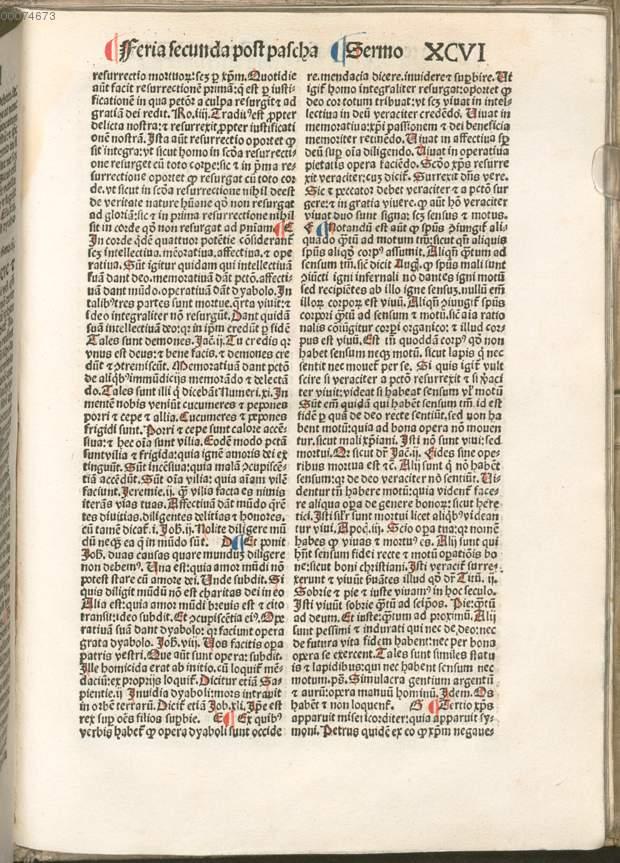 00074673
Feria secunda post pascha Sermo XCVI
resurrectio motiuor: scz ꝑ xp̄m. Quotidie
aūt facit resurrectionē primā: q̄ est ꝑ iusti-
ficationē in qua petōr a culpa resurgit ⁊ ad
gratiā dei redit. Ro. iiij. Traditus est ꝓpter
delicta nostra: ⁊ resurrexit ꝓpter iustificati
onē nostrā. Ista aūt resurrectio oportet ꝙ
sit integra: vt sicut homo in scda resurrecti-
one resurget cū toto corꝑe: sic ⁊ in pma re
surrectione oportet ꝙ resurgat cū toto cor
de. vt sicut in scda resurrectione nihil deest
de veritate nature hūane qd̄ non resurgat
ad gloriā: sic ⁊ in prima resurrectione nihil
sit in corde qd̄ non resurgat ad pn̄iam. C
In corde qd̄e quattuor potētie cōsiderant
scz intellectiua. mēoratiua. affectiua. ⁊ ope
ratiua. Sūt igitur quidam qui intellectiuā
suā dant deo. memoratiuā dāt petō. affecti-
uā dant mūdo. operatiuā dāt dyabolo. In
talibꝰ tres partes sunt mortue. q̄rta viuit: ⁊
ideo integraliter nō resurgūt. Dant quidā
suā intellectiuā deo: qr in ipm credūt ꝑ fidē
Tales sunt demones. Jac. ij. Tu credis qr
vnus est deus: ⁊ bene facis. ⁊ demones cre
dūt ⁊ ꝯtremiscūt. Memoratiuā dant petō
de aliqbꝰ immūdicijs memorādo ⁊ delectā
do. Tales sunt illi q̄ dicebāt Numeri. xi. In
mentē nobis veniūt cucumeres ⁊ pepones
porri ⁊ cepe ⁊ allia. Cucumeres ⁊ pepones
frigidi sunt. Porri ⁊ cepe sunt calore accē-
sua: ⁊ hec oīa sunt vilia. Eodē modo petā
sunt vilia ⁊ frigida: quia ignē amoris dei ex
tinguūt. Sūt incēsiua: quia malā ꝯcupiscē-
tiā accēdūt. Sūt oīa vilia: quia aīam vilē
faciunt. Jeremie. ij. q̄ vilis facta es nimis
iterās vias tuas. Affectiuā dāt mūdo q̄ren
tes diuitias. diligentes delitias ⁊ honores.
cū tamē dicat. i. Joh. ij. Nolite diligere mū
dū neqz ea q̄ in mūdo sūt. D Et ponit
Joh. duas causas quare mundus diligere
non debemꝰ. Una est: quia amor mūdi nō
potest stare cū amore dei. Unde subdit. Si
quis diligit mūdū nō est charitas dei in eo
Alia est: quia amor mūdi breuis est ⁊ cito
transit. ideo subdit. Et ꝯcupiscētia eiꝰ. Ope
ratiuā suā dant dyabolo: qr faciunt opera
grata dyabolo. Joh. viij. Uos facitis opa
patris vestri. Que aūt sunt opera: subdit.
Ille homicida erat ab initio. cū loquit mē-
daciū: ex proprijs loquit. Dicitur etiā Sa-
pientie. ij Inuidia dyaboli: mors intrauit
in orbē terrarū. Dicit etiā Job. xli. Ipse est
rex sup oēs filios supbie. E Ex quibꝰ
verbis habet ꝙ opera dyaboli sunt occide
re. mendacia dicere. inuidere ⁊ supbire. Ut
igit homo integraliter resurgat: oportet ꝙ
deo cor totum tribuat: vt scz viuat in intel-
lectiua in deū veraciter credēdo. Uiuat in
memoratiua: xp̄i passionem ⁊ dei beneficia
memoriter retinēdo. Uiuat in affectiua ip̄
deū sup oīa diligendo. Uiuat in operatiua
pietatis opera faciēdo. Scdo xp̄s resurre
xit veraciter: cuz dicit. Surrexit dn̄s vere.
Sic ⁊ peccator debet veraciter a petō sur
gere: ⁊ in gratia viuere. ꝙ aūt hō veraciter
viuat duo sunt signa: scz sensus ⁊ motus.
F Notandū est aūt ꝙ spūs ꝯiungit ali
quādo q̄tū ad motum tm̄: sicut qn̄ aliquis
spūs aliqd̄ corpꝰ assumit. Aliqn̄ q̄tum ad
sensum tm̄. sic dicit Aug. ꝙ spūs mali sunt
ꝯiūcti igni infernali nō dantes igni motū
sed recipiētes ab illo igne sensuz. nullū em̄
illorū corporū est viuū. Aliqn̄ ꝯiungit spūs
corpori q̄tū ad sensum ⁊ motū. sic aīa ratio
nalis cōiūgitur corpī organico: ⁊ illud cor-
pus est viuū. Est tn̄ quoddā corpꝰ qd̄ non
habet sensum neqz motū. sicut lapis q̄ nec
sentit nec mouet per se. Si quis igit vult
scire si veraciter a petō resurrexit ⁊ si ꝟaci
ter viuit: videat si habeat sensum vel motū
Sūt em̄ quidā qui habēt sensum tm̄. id est
fidē ꝑ quā de deo recte sentiūt. sed non ha
bent motū: quia ad bona opera nō mouen
tur. sicut mali xp̄iani. Isti nō sunt viui: sed
mortui. Qr sicut dr̄ Jac. ij. Fides sine ope-
ribus mortua est ⁊c. Alij sunt q̄ nō habēt
sensum: qr de deo veraciter nō sentiūt. Ui-
dentur tn̄ habere motū: quia vident face-
re aliqua opa de genere bonor: sicut here
tici. Isti sicut sunt mortui licet aliqbꝰ videan
tur viui. Apoc. iij. Scio opa tua: qr nomē
habes ꝙ viuas ⁊ mortuꝰ es. Alij sunt qui
hn̄t sensum fidei recte ⁊ motū opatiōis bo
ne: sicut boni christiani. Isti veracit surre-
xerunt ⁊ viuūt ẜuantes illud qd̄ dr̄ Titū. ij.
Sobrie ⁊ pie ⁊ iuste viuam in hoc seculo.
Isti viuūt sobrie q̄tū ad seipos. Pie: q̄tū
ad deum. Et iuste: q̄tum ad proximū. Alij
sunt pessimi ⁊ indurati qui nec de deo: nec
de futura vita fidem habent: nec per bona
opera se exercent. Tales sunt similes statu
is ⁊ lapidibus: qui nec habent sensum nec
motum. ps. Simulacra gentium argentū
⁊ aurū: opera manuū hominū. Idem. Os
habēt ⁊ non loquent. G Tertio xp̄s
apparuit misericorditer: quia apparuit sy-
moni. Petrus quidē ex eo ꝙ xp̄m negaue-